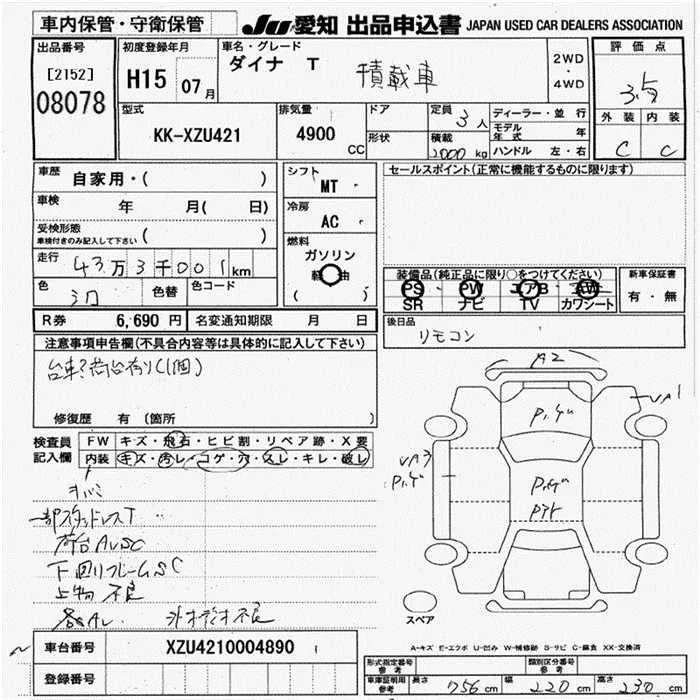 車内保管・守衛保管
JU愛知 出品申込書 JAPAN USED CAR DEALERS ASSOCIATION
出品番号
[2152]
08078
初度登録年月
H15 07月
車名・グレード
ダイナ T 積載車
2WD
・
4WD
評価点
3.5
外装 内装
C C
型式
KK-XZU421
排気量
4900
CC
ドア
形状
定員 3人
積載
2000 kg
ディーラー・並行
モデル年式 年
ハンドル 左・右
車歴 自家用・( )
車検 年 月( 日)
受検形態
車検付きのみ記入して下さい ( )
走行 43万3千001km
色 シロ 色替 色コード
シフト
MT
冷房
AC
燃料
ガソリン
軽油
( )
セールスポイント(正常に機能するものに限ります)
装備品(純正品に限り○をつけてください)
PS PW エアB AW
SR ナビ TV カワシート
新車保証書
有・無
R券 6,690円 名変通知期限 月 日
後日品
リモコン
注意事項申告欄(不具合内容等は具体的に記入して下さい)
修復歴 有 (箇所 )
検査員
記入欄
FW キズ・飛石・ヒビ割・リペア跡・X要
内装 キズ・汚レ・コゲ・穴・スレ・キレ・破レ
一部スタッドレスT
荷台AUSC
下回リフレームSC
上物不良
オーディオ不良
A2
UA1
P.ゲ
UA3
P.ゲ
P.ゲ
スペア
車台番号 XZU4210004890
登録番号
A-キズ E-エクボ U-凹み W-補修跡 S-サビ C-腐食 XX-交換済
形式指定番号
参考
類別区分番号
参考
車庫証明用
参考
長さ 756cm 幅 220cm 高さ 230cm